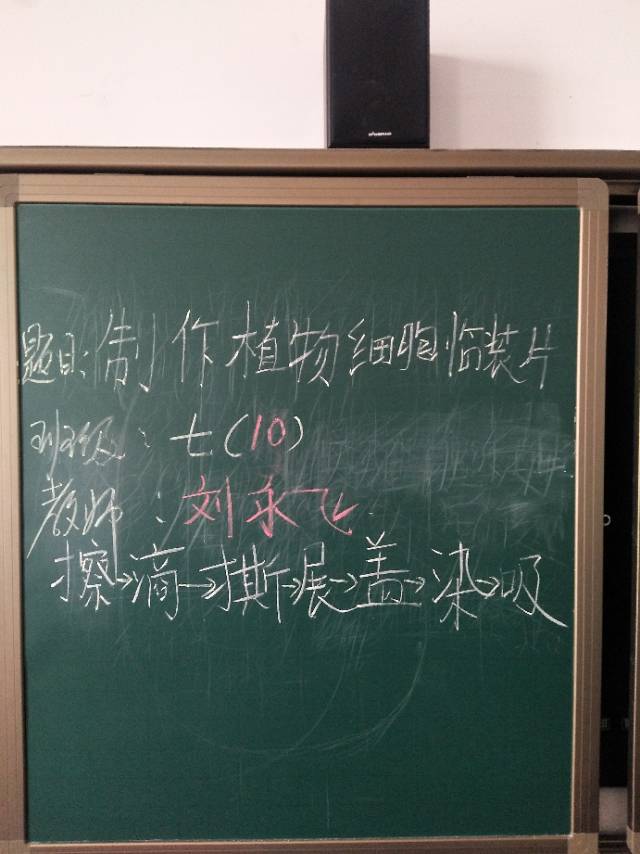 题目:制作植物细胞临装片
班级:七(10)
教师:刘永飞
擦→滴→撕→展→盖→染→吸